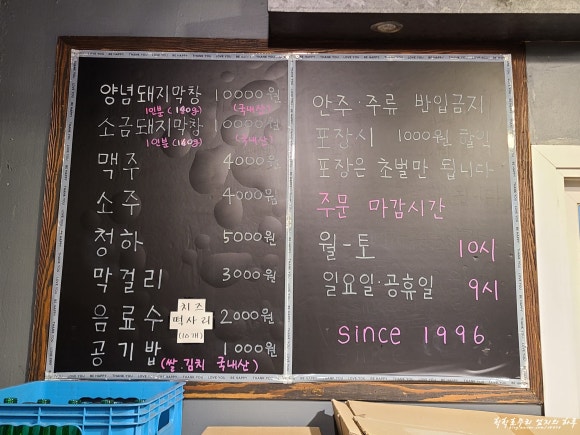 양념돼지막창 10000원
1인분(140g) (국내산)
소금돼지막창 10000원
1인분(140g) (국내산)
맥주 4000원
소주 4000원
청하 5000원
막걸리 3000원
음료수 2000원
치즈
떡사리
(10개)
공기밥 1000원
(쌀.김치 국내산)
안주·주류 반입금지
포장시 1000원 할인
포장은 초벌만 됩니다
주문 마감시간
월-토 10시
일요일·공휴일 9시
since 1996